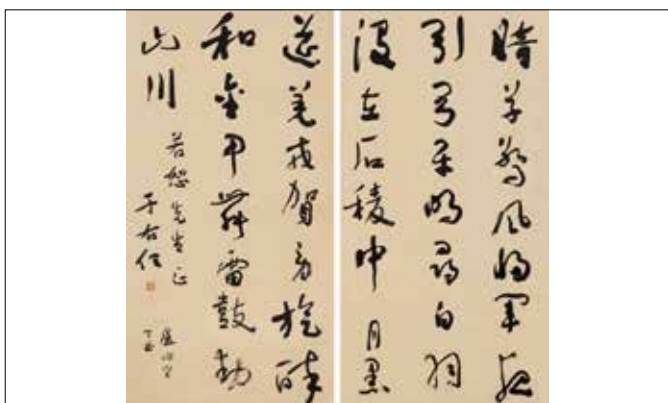 暗草驚風將軍夜
引弓平明尋白羽
沒在石稜中月黑
筵羌戎賀勞旋醉
和金甲舞雷鼓動
山川
若恕先生正
于右任